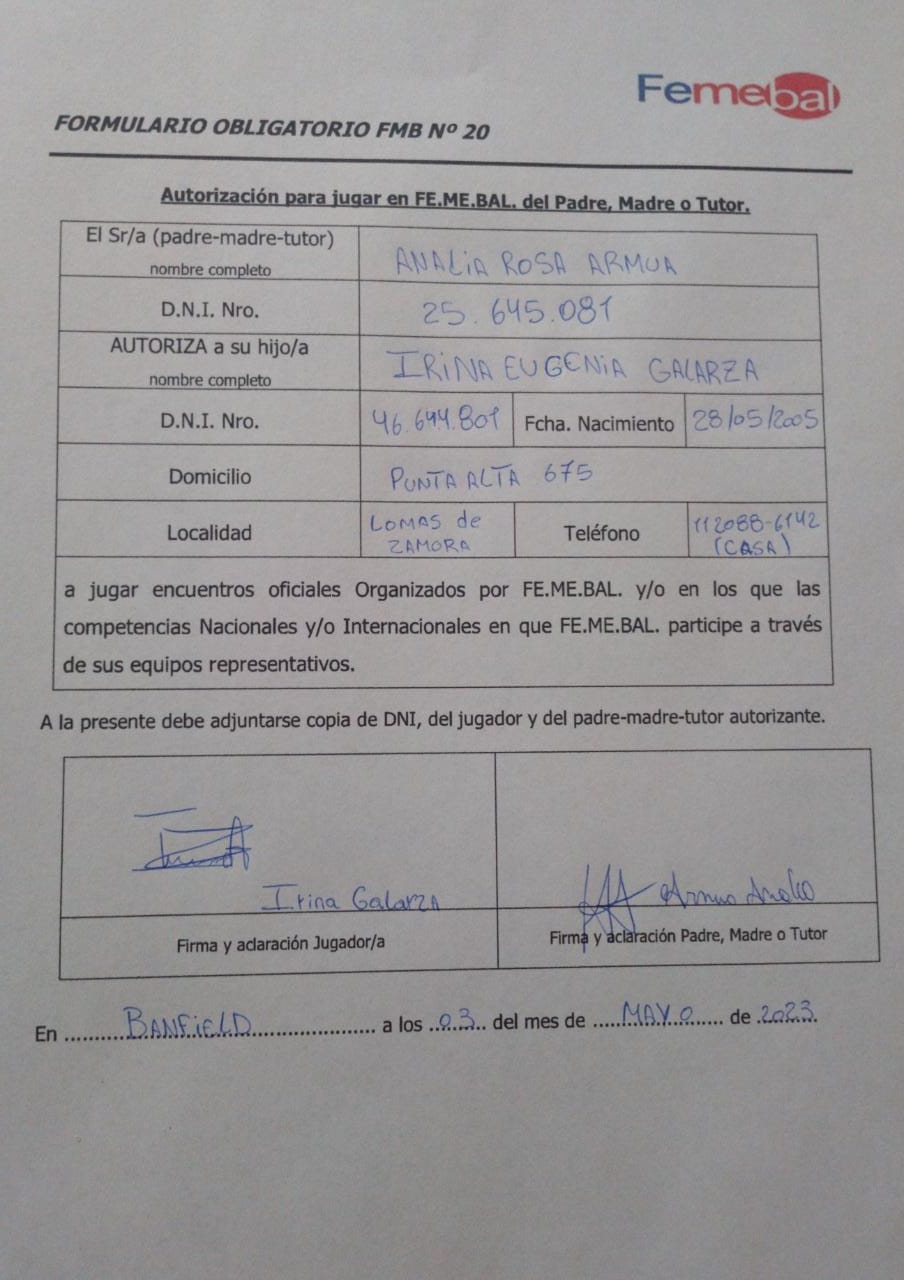 Femebal
FORMULARIO OBLIGATORIO FMB Nº 20
Autorización para jugar en FE.ME.BAL. del Padre, Madre o Tutor.
El Sr/a (padre-madre-tutor)
nombre completo
ANALIA ROSA ARMUA
D.N.I. Nro.
25.645.081
AUTORIZA a su hijo/a
nombre completo
IRINA EUGENIA GALARZA
D.N.I. Nro.
46.644.801
Fcha. Nacimiento
28/05/2005
Domicilio
PUNTA ALTA 675
Localidad
LOMAS de
ZAMORA
Teléfono
112088-6142
(CASA)
a jugar encuentros oficiales Organizados por FE.ME.BAL. y/o en los que las
competencias Nacionales y/o Internacionales en que FE.ME.BAL. participe a través
de sus equipos representativos.
A la presente debe adjuntarse copia de DNI, del jugador y del padre-madre-tutor autorizante.
Irina Galarza
Firma y aclaración Jugador/a
Armua Analia
Firma y aclaración Padre, Madre o Tutor
En ...........BANFIELD..................... a los ..03.. del mes de .....MAYO...... de .2023.